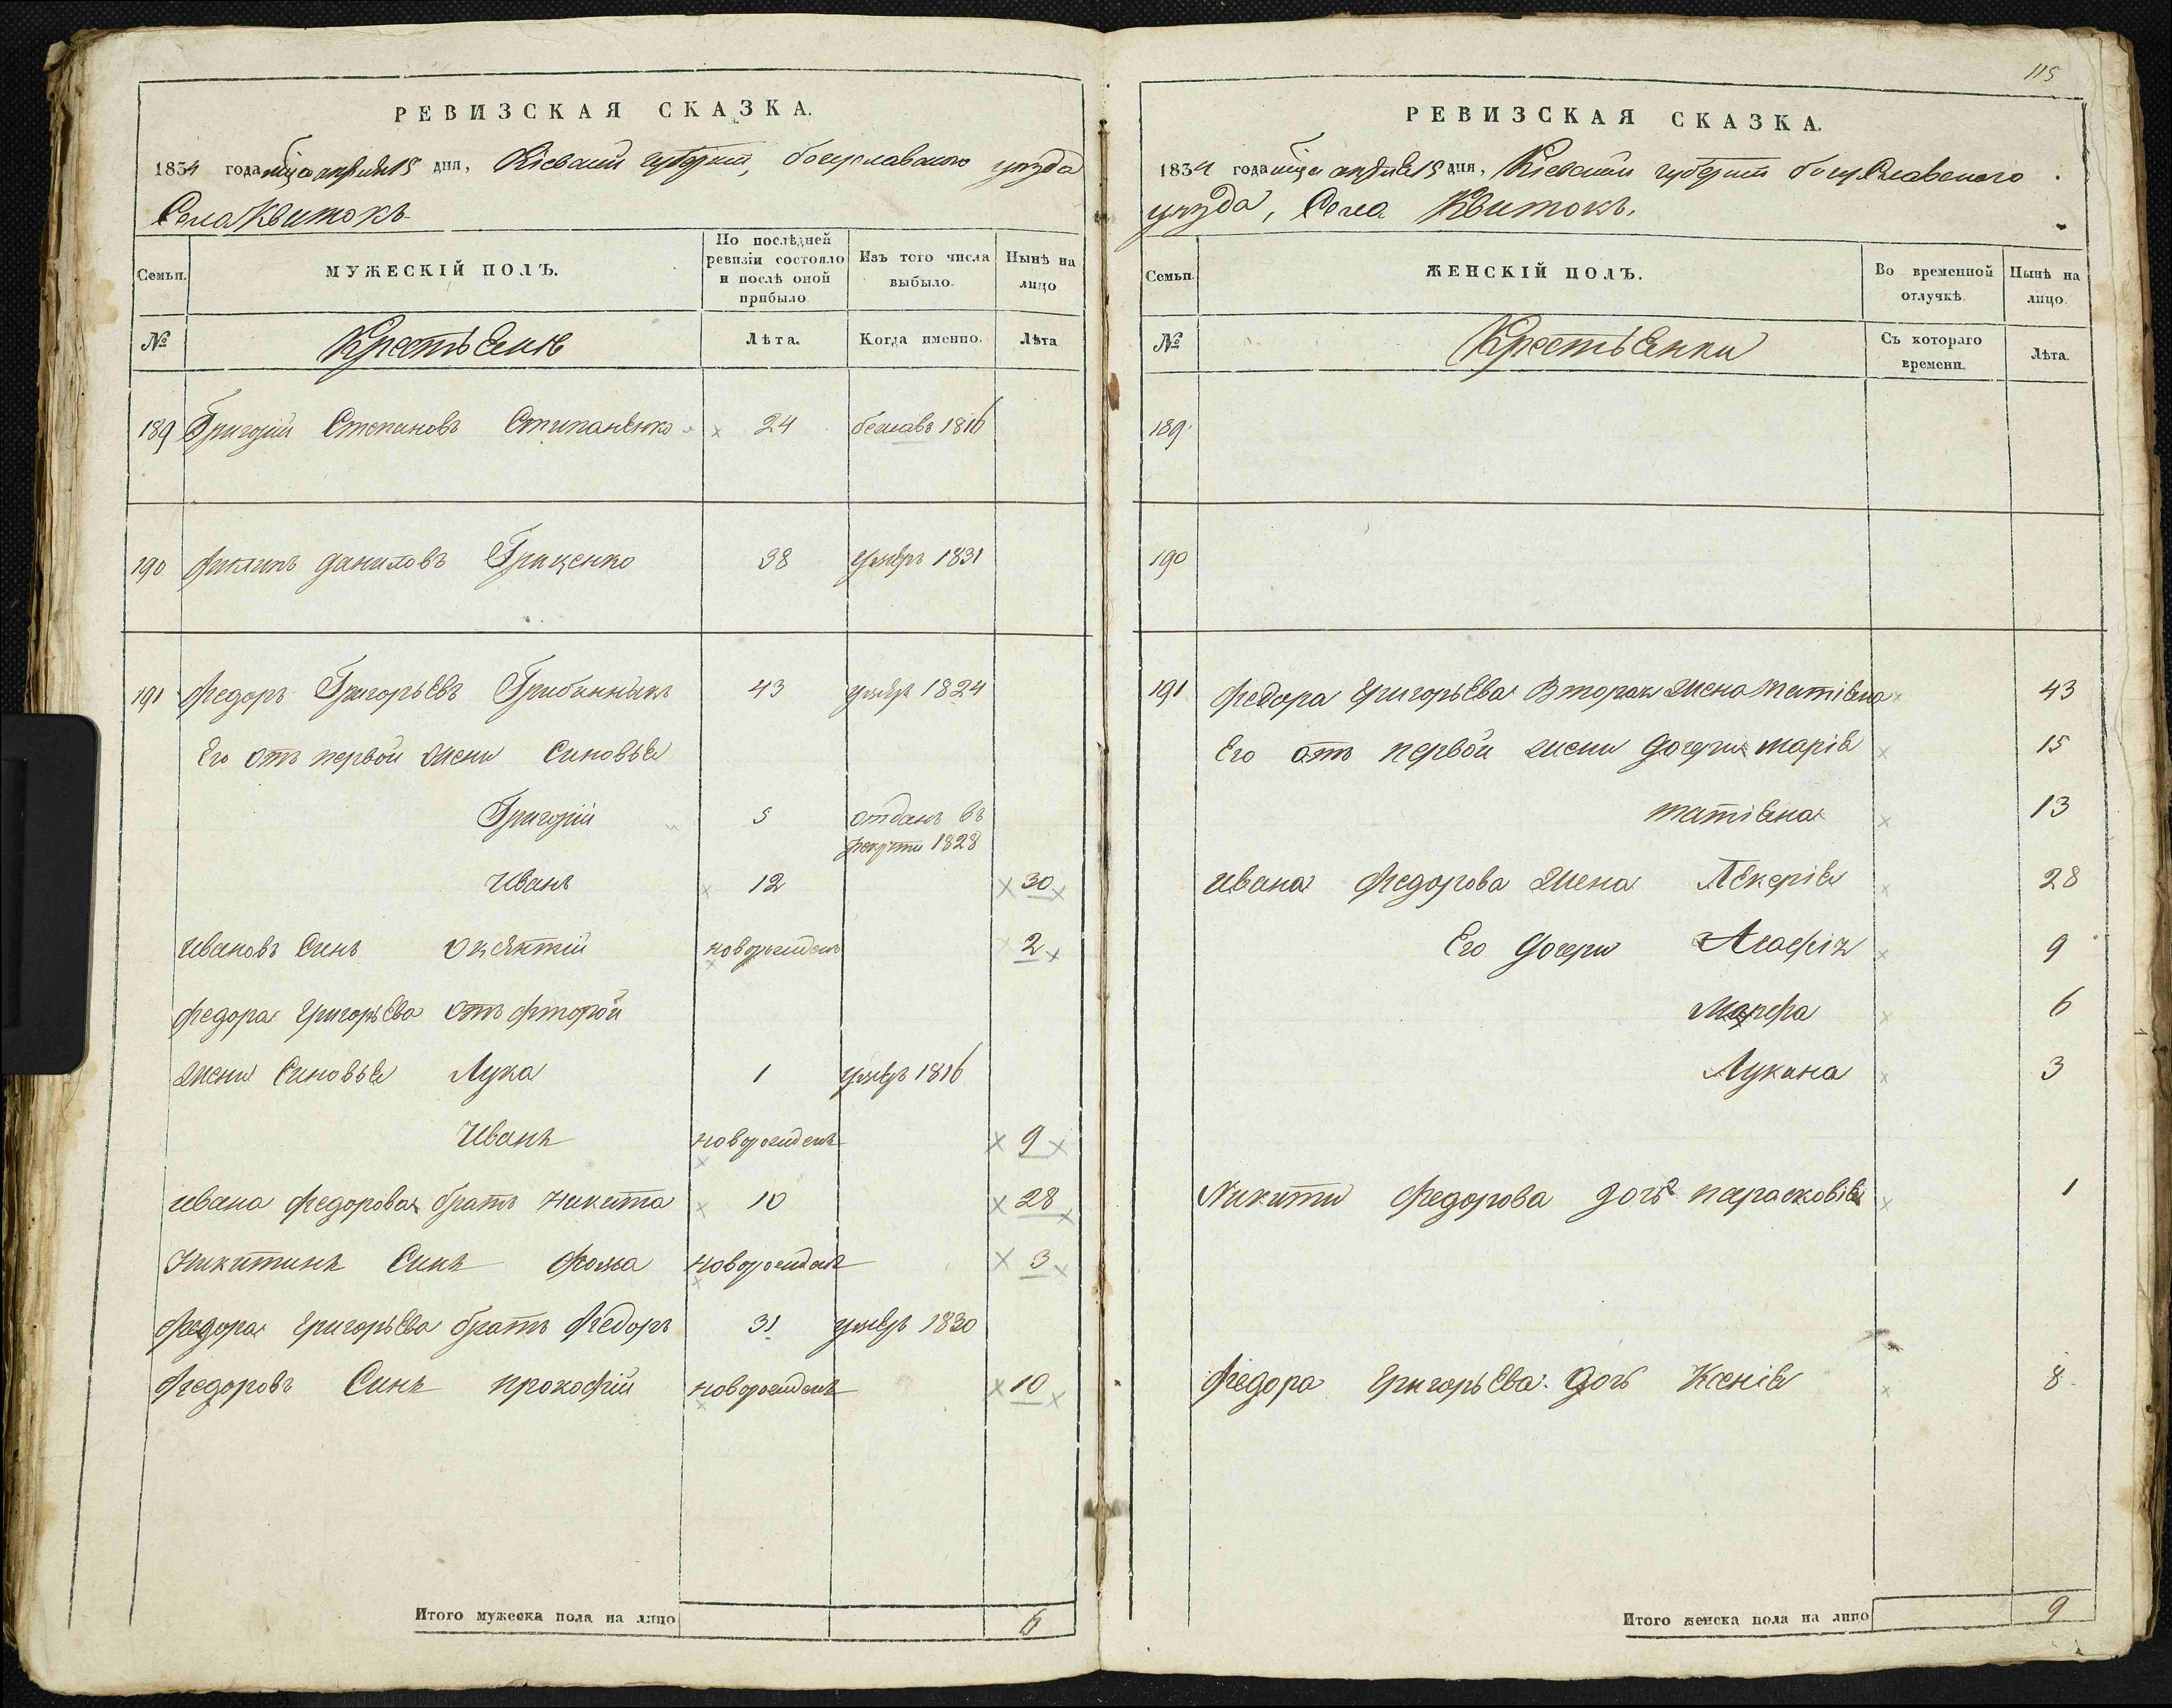 РЕВИЗСКАЯ СКАЗКА.
1834 года мца апреля 15 дня, Кіевской губерніи, богуславского уезда
Села Квитокъ
Семьи.
МУЖЕСКІЙ ПОЛЪ.
По послѣдней ревизіи состояло и послѣ оной прибыло
Изъ того числа выбыло.
Нынѣ на лицо
№
Крестьяне
Лѣта.
Когда именно.
Лѣта
189 Григорій Степановъ Стипаненко 24 бежавъ 1816
190 Филипъ даниловъ Гриценко 38 умеръ 1831
191 Федоръ Григорьевъ Грибинникъ 43 умеръ 1824
Его отъ первой жени Синовья
Григорій 5 отданъ въ
рекрути 1828
Иванъ 12 30
Ивановъ Синъ новорожденъ 2
Федора Григорьева отъ фторой
жени Синовья Лука 1 умеръ 1816
Иванъ новорожденъ 9
Ивана Федорова братъ Никита 10 28
Никитинъ Синъ Фома новорожденъ 3
Федора Григорьева братъ Федоръ 31 умеръ 1830
Федоровъ Синъ прокофій новорожденъ 10
Итого мужеска пола на лицо 6
115
РЕВИЗСКАЯ СКАЗКА.
1834 года мца апреля 15 дня, Кіевской губерніи богуславского
уезда, Села Квитокъ.
Семьи.
ЖЕНСКІЙ ПОЛЪ.
Во временной отлучкѣ.
Нынѣ на лицо.
№
Крестьянки
Съ котораго времени.
Лѣта.
189
190
191 Федора Григорьева Вторая жена татіяна 43
Его отъ первой жени дочери марія 15
татіяна 13
Ивана Федорова жена Лекерія 28
Его Дочери Агафія 9
Марфа 6
Лукина 3
Никити Федорова дочь парасковія 1
Федора Григорьева дочь Ксенія 8
Итого женска пола на лицо 9